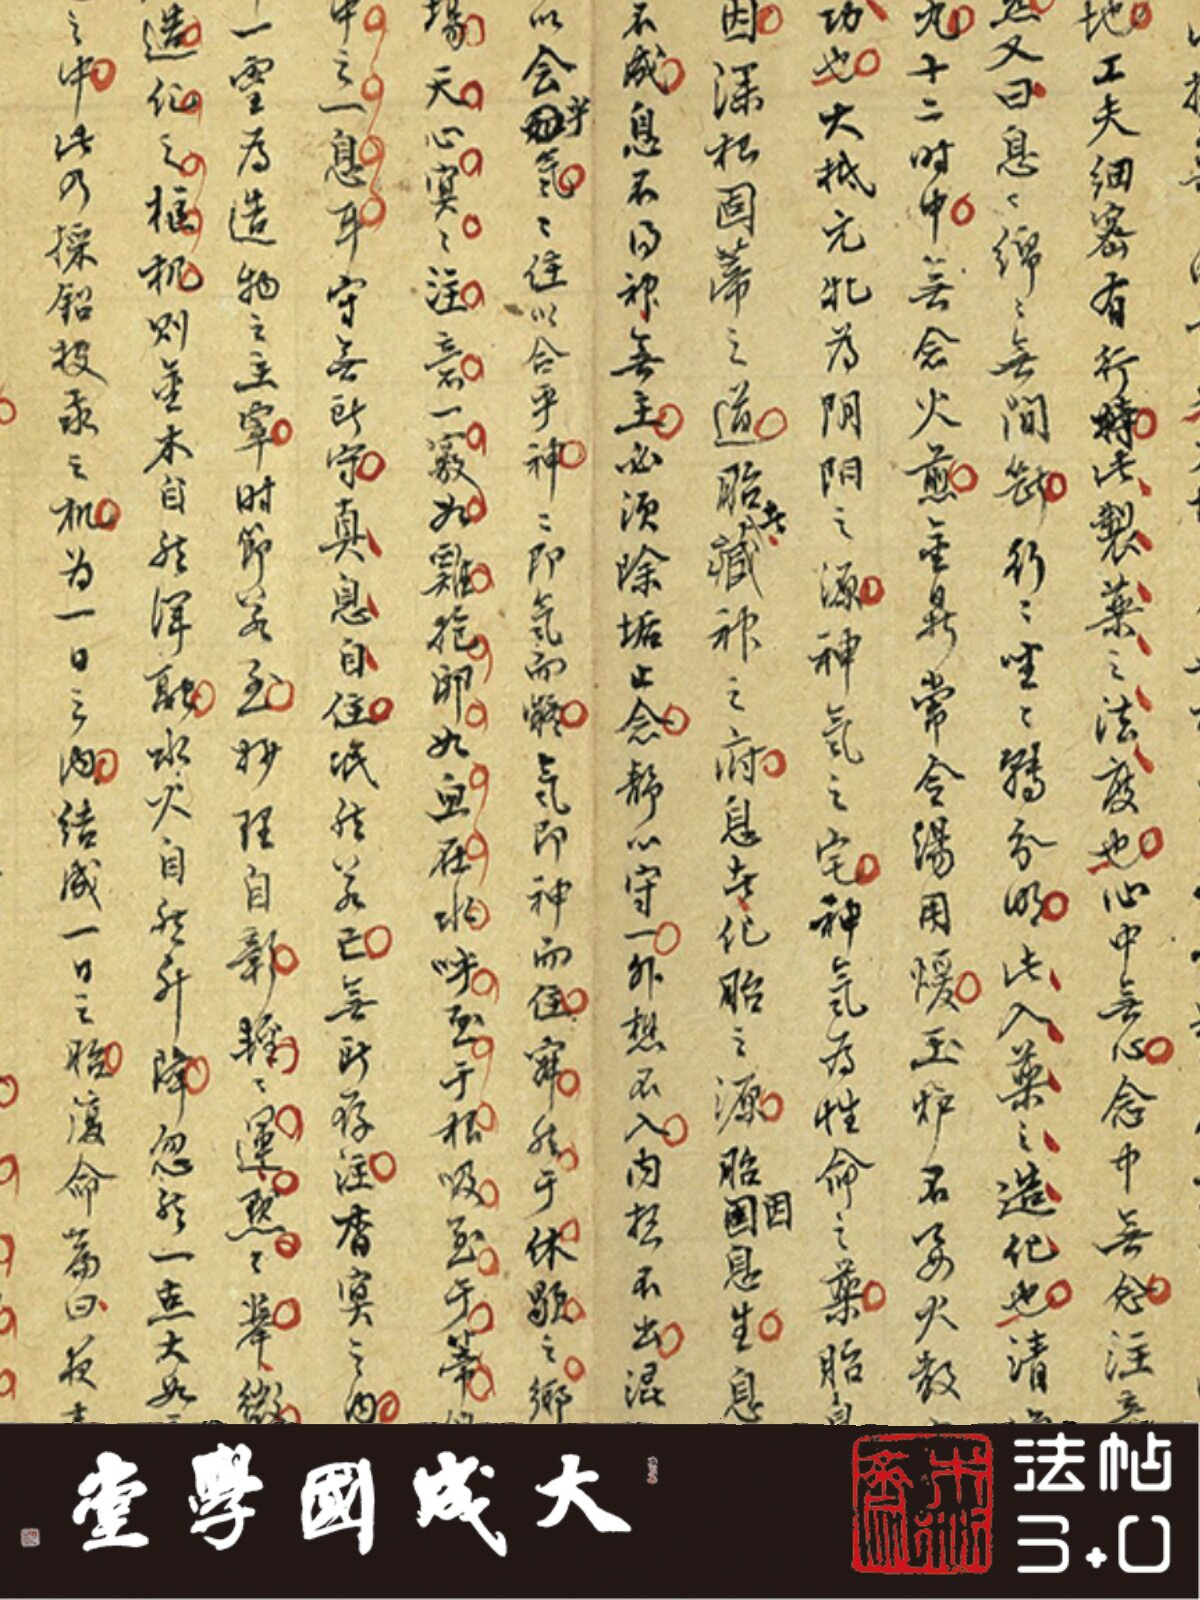 地工夫細密有行持此製藥之法度也心中無心念中無念注意
然又曰息〻綿〻無間斷行〻坐〻轉分明此入藥之造化也清
九十二时中無念火煎金鼎常令湯用煖玉炉不要火散
功也大抵元牝为阴阳之源神氣之宅神氣为性命之藥胎息
因深根固蒂之道胎者藏神之府息者化胎之源胎因息生息
不成息不得神無主必须除垢止念静心守一外想不入内想不出混
以会乎氣〻住以合乎神〻即氣而凝氣即神而住寂然于休歇之鄉
場天心寞〻注意一竅如雞抱卵如魚在水呼至于根吸至于蒂
中之一息耳守無所守真息自住泯然若亡無所存注杳冥之内
一靈为造物之主宰时節若至妙理自彰輕〻運默〻举微
造化之樞机則金木自然渾融水火自然升降忽然一点大如
之中此乃採鉛投汞之机为一日之内结成一日之胎復命篇曰夜
大成國學堂
法帖
3.0